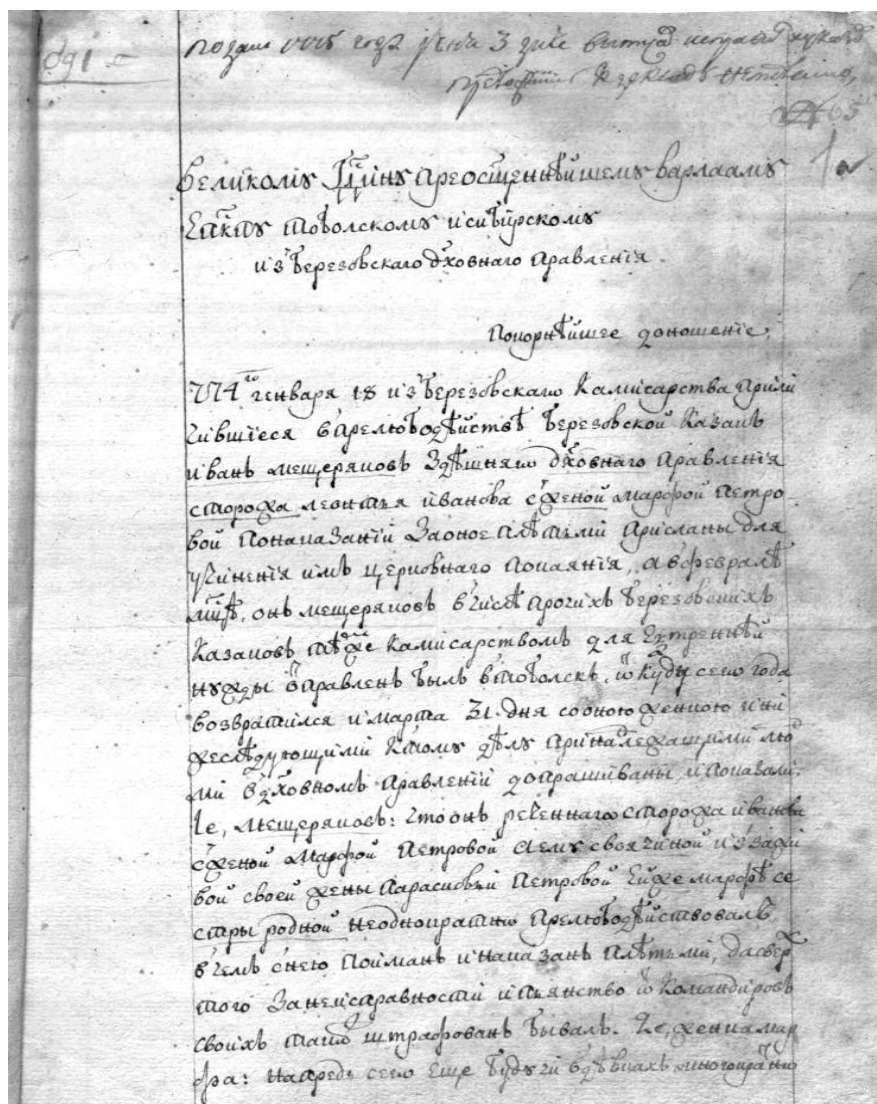 подано 1775 года июня 3 дня
Великому Гдину преосщеннѣйшему варлааму
Епкпу тоболскому и сибирскому
из березовскаго дховнаго правления
Покорнѣйшее доношение,
774го генваря 18 из березовскаго Камисарства прили
чившиеся в прелюбодѣйствѣ березовской Казакъ
иванъ мещеряковъ здѣшняго дховнаго правления
сторожа леонтья иванова с женой марфой петро
вой по наказании за оное плѣтьми присланы для
учинения имъ церковнаго покаяния, а в февралѣ
мцѣ, онъ мещеряковъ в числѣ прочихъ березовскихъ
Казаковъ тѣмже Камисарствомъ для Екстреннѣй
нужды отправленъ былъ в тоболскъ, откуду сего года
возвратился и марта 31. дня со оною женкою и ни
жеследующими к тому дѣлу приналежащими лю
ми в дховномъ правлении допрашиваны, и показали.
1е, мещеряковъ: что онъ реченнаго сторожа иванова
с женой марфой Петровой а ему своячиной и за жи
вой своей жены Парасковьи Петровой Ейже марфѣ се
стры родной неоднократно прелюбодѣйствовалъ,
в чемъ с нею пойманъ и наказанъ плѣтьми, да сверх
того за неисправности и пьянство от Командировъ
своихъ штрафованъ бывалъ. 2е, женка мар
фа: напредь сего Еще будучи в дѣвкахъ многократно